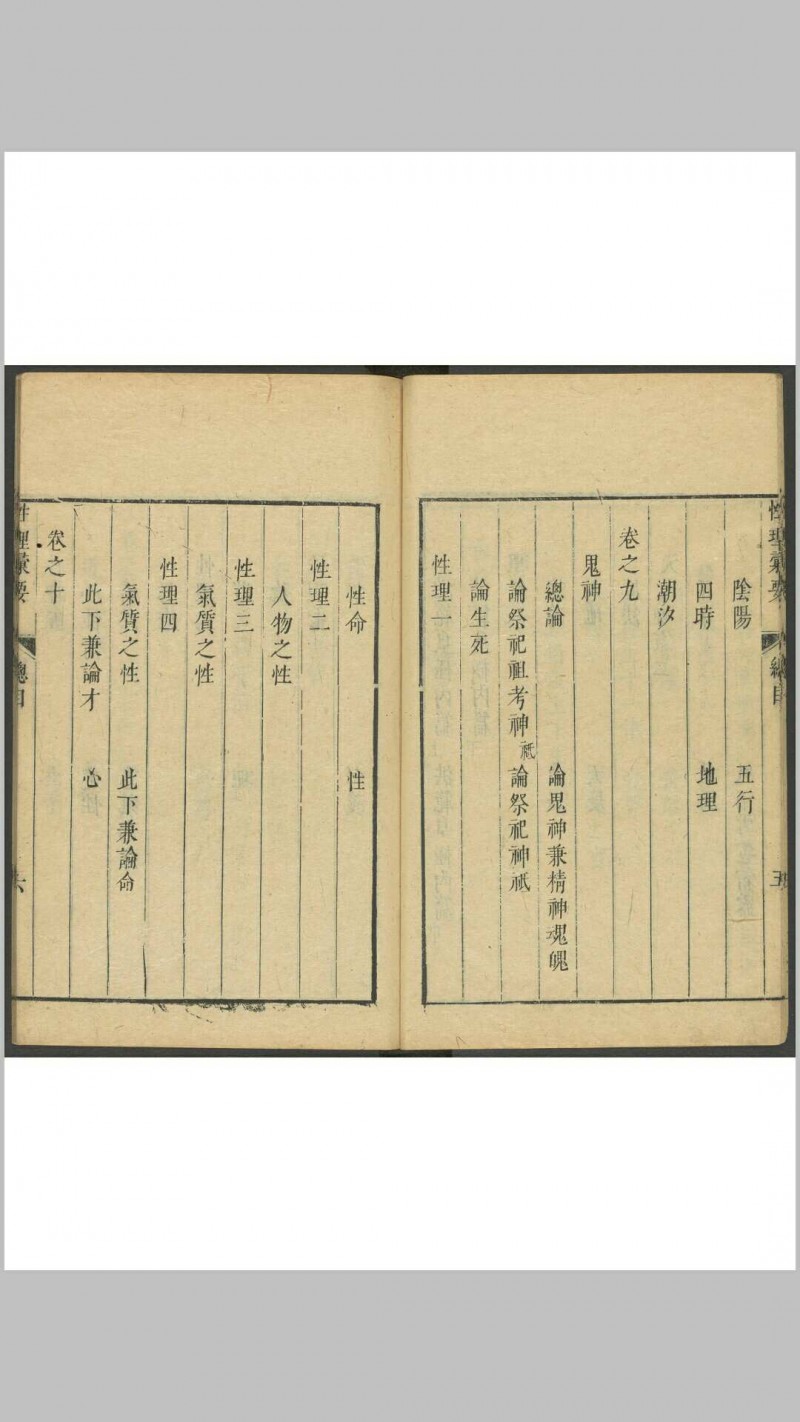 性理彙要 總目 五
陰陽 五行
四時 地理
潮汐
卷之九
鬼神
總論 論鬼神兼精神魂魄
論祭祀祖考神祇 論祭祀神祇
論生死
性理一
性命 性
性理二
人物之性
性理三
氣質之性
性理四
氣質之性 此下兼論命
此下兼論才 心
卷之十
性理彙要 總目 六